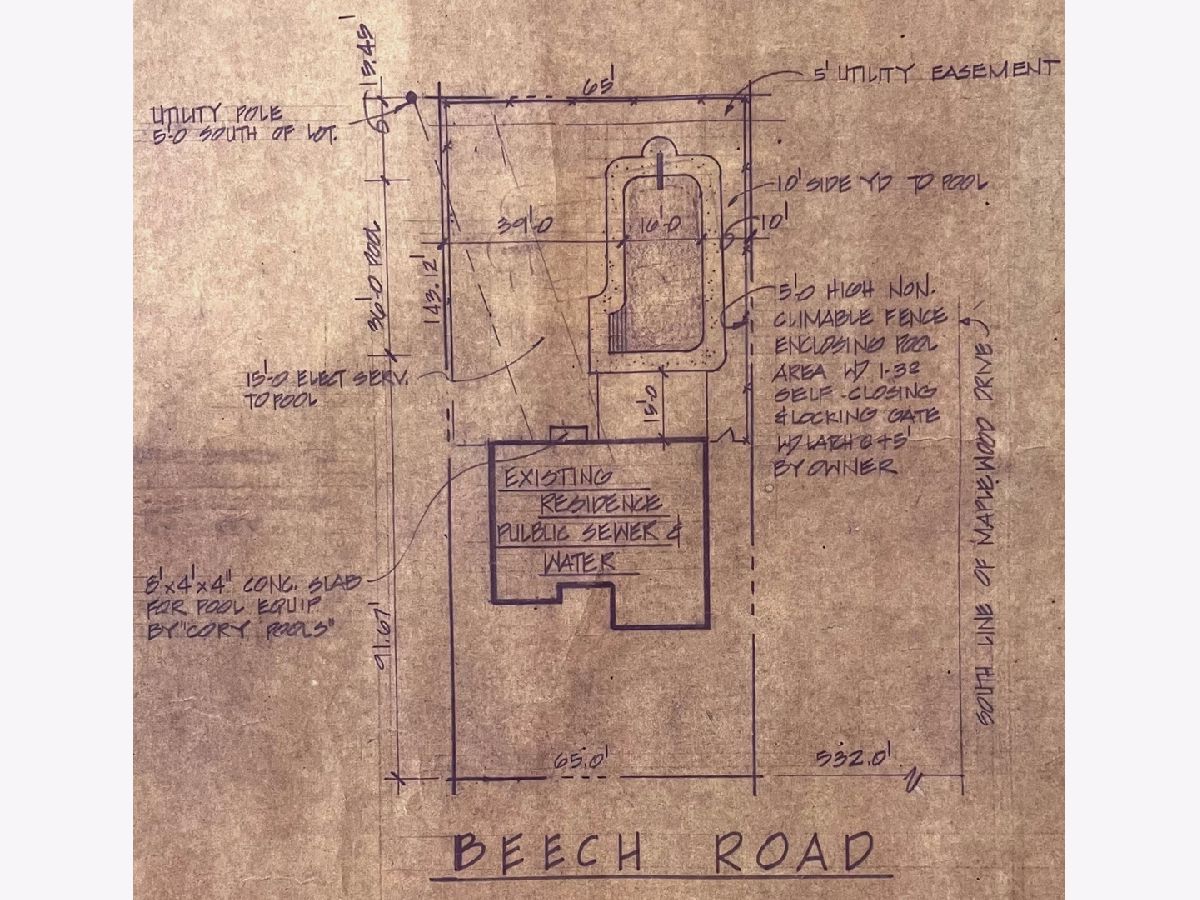 15.45'
65'
5' UTILITY EASEMENT
UTILITY POLE
5'-0 SOUTH OF LOT.
6'
10' SIDE YD TO POOL
39'-0
16'-0
10'
36'-0 POOL
143.12'
5'-0 HIGH NON.
CLIMABLE FENCE
ENCLOSING POOL
AREA W/ 1-32
SELF-CLOSING
& LOCKING GATE
W/ LATCH @ 45"
BY OWNER
15'-0 ELECT SERV.
TO POOL
15'-0
EXISTING
RESIDENCE
PULBLIC SEWER &
WATER
8'x4'x4" CONC. SLAB
FOR POOL EQUIP
BY "CORY POOLS"
91.67'
SOUTH LINE OF MAPLEWOOD DRIVE
65.0'
532.0'
BEECH ROAD